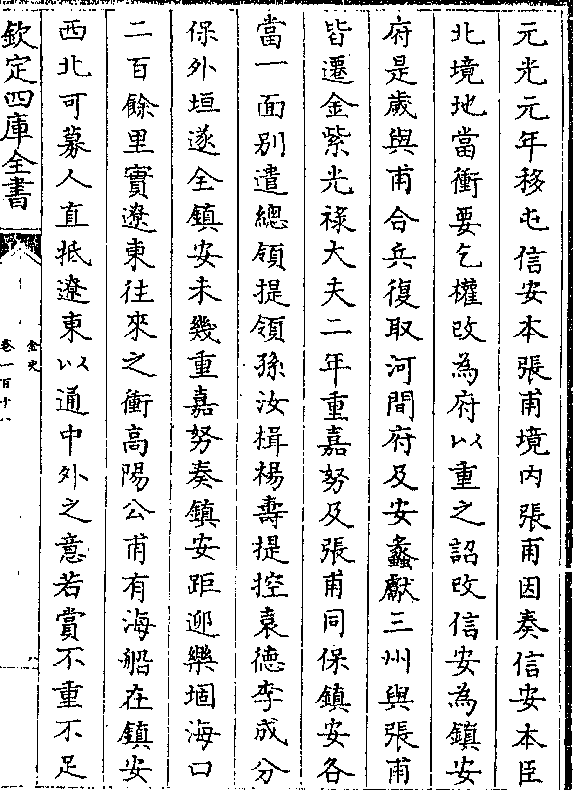 元光元年移屯信安本張甫境内張甫因奏信安本臣
北境地當衝要乞權改為府以重之詔改信安為鎮安
府是歲與甫合兵復取河間府及安蠡獻三州與張甫
皆遷金紫光祿大夫二年重嘉努及張甫同保鎮安各
當一面别遣總領提領孫汝楫楊壽提控袁德李成分
保外垣遂全鎮安未幾重嘉努奏鎮安距迎樂堌海口
二百餘里實遼東往來之衝高陽公甫有海船在鎮安
西北可募人直抵遼東以通中外之意若賞不重不足
欽定四庫全書
金史
卷一百十八